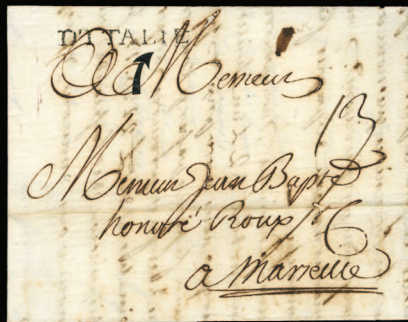 D'ITALIE
A Monsieur
13
Monsieur Jean Bapte
honoré Roux
a Marseille